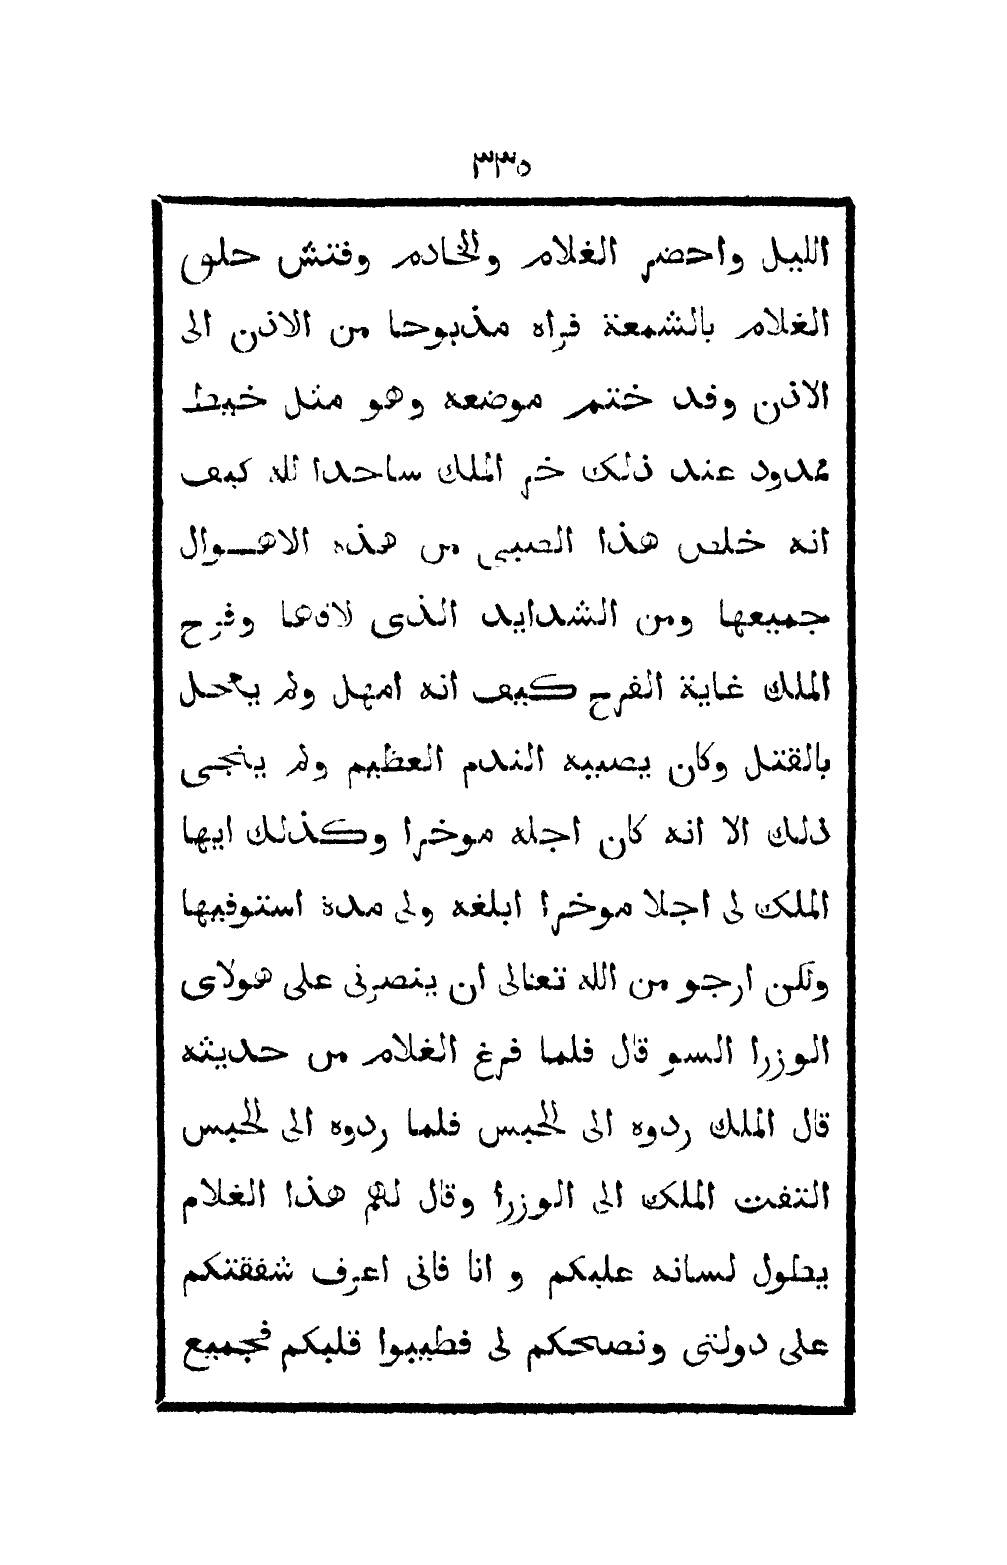 ٣٣٥
الليل واحضر الغلام والخادم وفتش حلق
الغلام بالشمعة فراه مذبوحا من الاذن الى
الاذن وقد ختم موضعه وهو مثل خيط
ممدود عند ذلك خر الملك ساجدا لله كيف
انه خلص هذا الصبى من هذه الاهــوال
جميعها ومن الشدايد الذى لاقاها وفرح
الملك غاية الفرح كيف انه امهل ولم يعجل
بالقتل وكان يصيبه الندم العظيم ولم ينجى
ذلك الا انه كان اجله موخرا وكذلك ايها
الملك لى اجلا موخرا ابلغه ولى مدة استوفيها
ولكن ارجو من الله تعالى ان ينصرنى على هولاى
الوزرا السو قال فلما فرغ الغلام من حديثه
قال الملك ردوه الى الحبس فلما ردوه الى الحبس
التفت الملك الى الوزرا وقال لهم هذا الغلام
يطول لسانه عليكم و انا فانى اعرف شفقتكم
على دولتى ونصحكم لى فطيبوا قلبكم فجميع